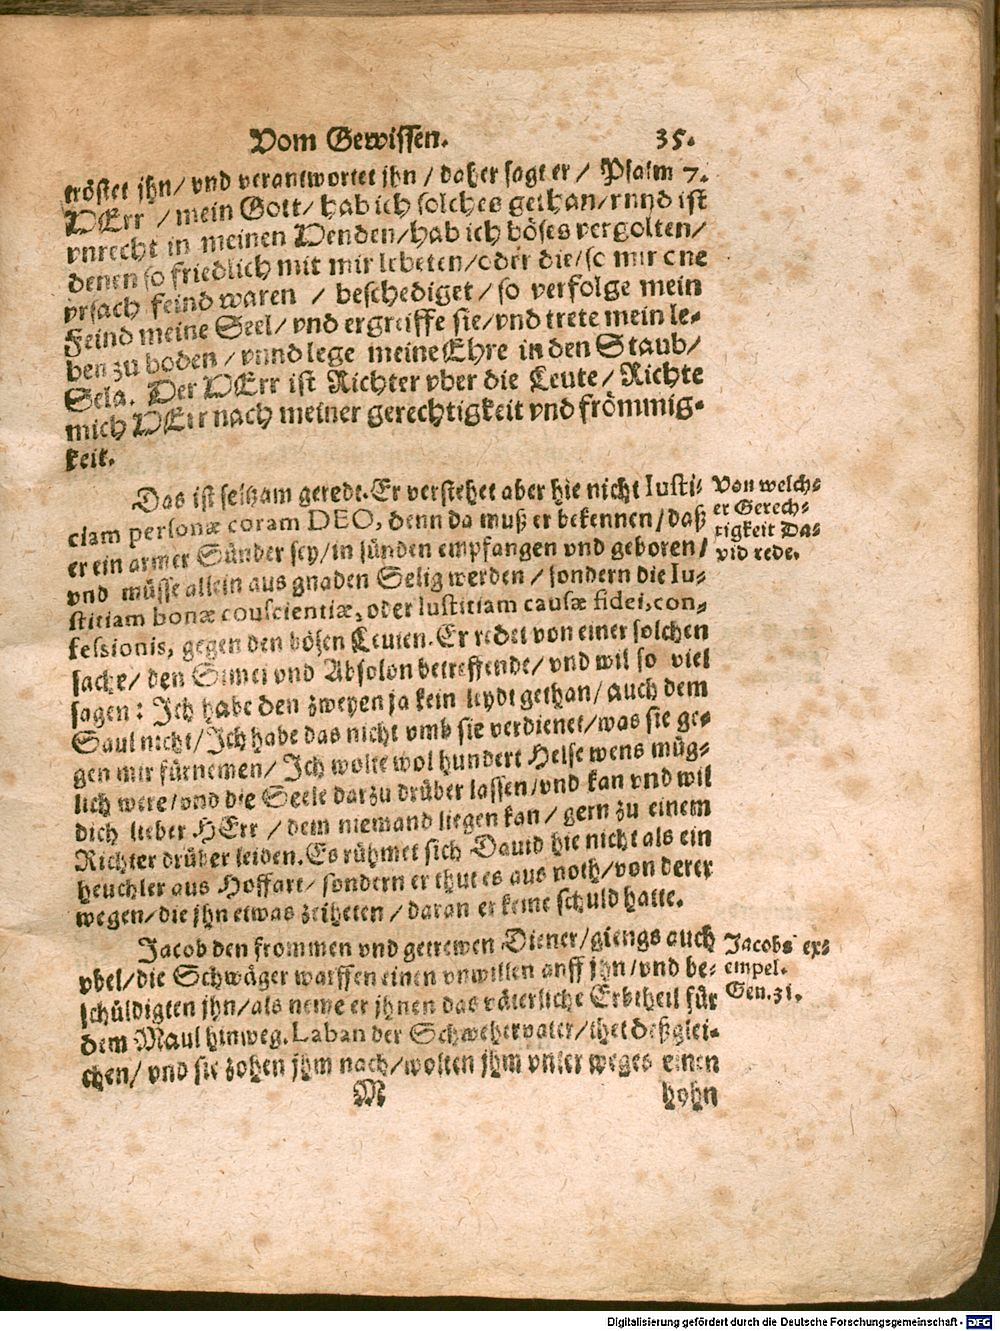 Vom Gewissen. 35.
tröstet jhn/ vnd verantwortet jhn / daher sagt er / Psalm 7.
HErr / mein Gott/ hab ich solches gethan/ vnnd ist
vnrecht in meinen Henden/ hab ich böses vergolten/
denen so friedlich mit mir lebeten/ oder die/ so mir one
vrsach feind waren / beschediget / so verfolge mein
Feind meine Seel/ vnd ergreiffe sie/ vnd trete mein le-
ben zu boden / vnnd lege meine Ehre in den Staub/
Sela. Der HErr ist Richter vber die Leute/ Richte
mich HErr nach meiner gerechtigkeit vnd frömmig-
keit.
Das ist seltzam geredt. Er verstehet aber hie nicht Iusti-
ciam personæ coram DEO, denn da muß er bekennen/ daß
er ein armer Sünder sey/ in sünden empfangen vnd geboren/
vnd müsse allein aus gnaden Selig werden / sondern die Iu-
stitiam bonæ couscientiæ, oder Iustitiam causæ fidei, con-
fessionis, gegen den bösen Leuten. Er redet von einer solchen
sache/ den Simei vnd Absolon betreffende/ vnd wil so viel
sagen: Ich habe den zweyen ja kein leydt gethan/ auch dem
Saul nicht/ Ich habe das nicht vmb sie verdienet/ was sie ge-
gen mir fürnemen/ Ich wolte wol hundert Helse wens müg-
lich were/ vnd die Seele darzu drüber lassen/ vnd kan vnd wil
dich lieber HErr / dem niemand liegen kan/ gern zu einem
Richter drüber leiden. Es rühmet sich Dauid hie nicht als ein
heuchler aus Hoffart/ sondern er thut es aus noth/ von derer
wegen/ die jhn etwas zeiheten / daran er keine schuld hatte.
Von welch-
er Gerech-
tigkeit Da-
vid rede.
Jacob den frommen vnd getrewen Diener/ giengs auch
vbel/ die Schwäger warffen einen vnwillen auff jhn/ vnd be-
schüldigten jhn/ als neme er jhnen das väterliche Erbtheil für
dem Maul hinweg. Laban der Schwehervater/ thet deßglei-
chen/ vnd sie zohen jhm nach/ wolten jhm vnter weges einen
Jacobs ex-
empel.
Gen. 31.
M hohn
Digitalisierung gefördert durch die Deutsche Forschungsgemeinschaft - DFG